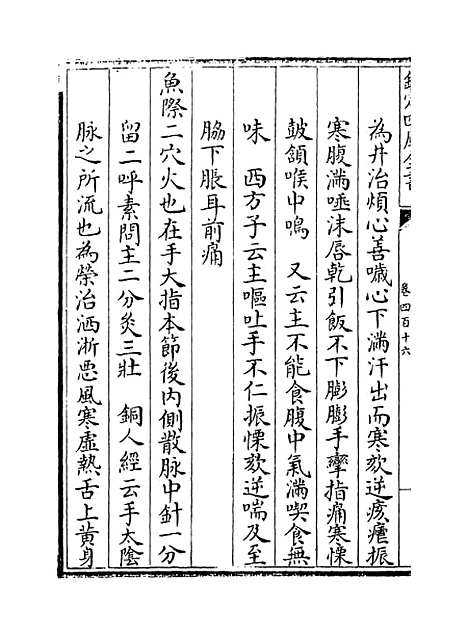 欽定四庫全書
卷四百十六
為井治煩心善噦心下滿汗出而寒欬逆痎瘧振
寒腹滿唾沫唇乾引飯不下膨膨手攣指痛寒慄
皷頷喉中鳴　又云主不能食腹中氣滿喫食無
味　西方子云主嘔吐手不仁振慄欬逆喘及至
脇下脹耳前痛
魚際二穴火也在手大指本節後内側散脉中針一分
留二呼素問主二分灸三壯　銅人經云手太隂
脉之所流也為榮治洒淅悪風寒虛熱舌上黄身